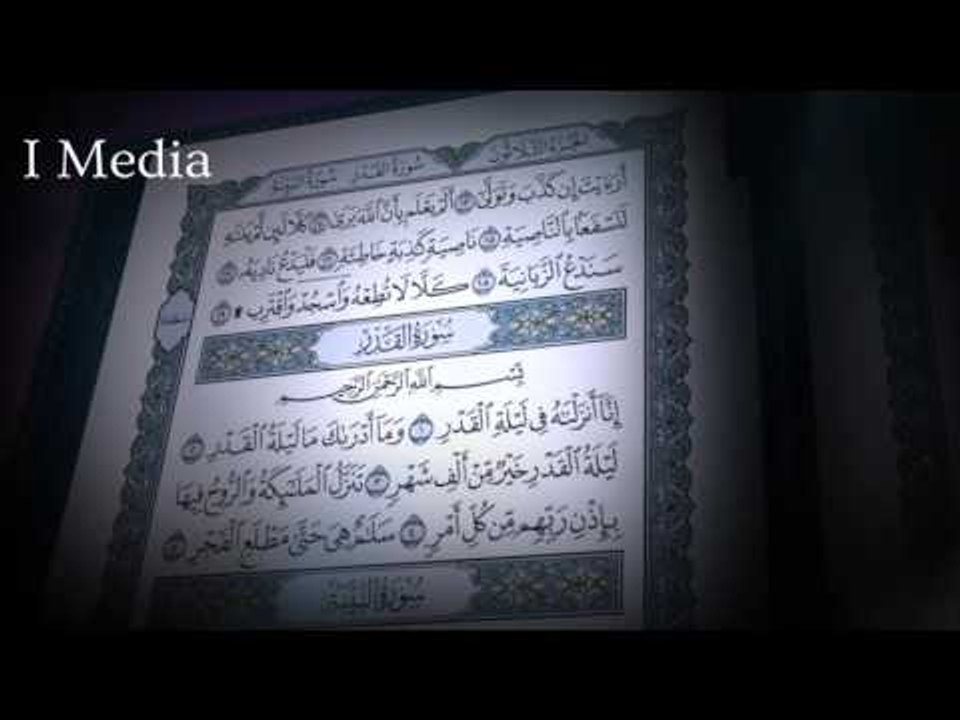 I Media
الجزء الثلاثون
سورة القدر سورة البينة
أَرَءَيْتَ إِن كَذَّبَ وَتَوَلَّىٰٓ ١٣ أَلَمْ يَعْلَم بِأَنَّ ٱللَّهَ يَرَىٰ ١٤ كَلَّا لَئِن لَّمْ يَنتَهِ
لَنَسْفَعًۢا بِٱلنَّاصِيَةِ ١٥ نَاصِيَةٍ كَٰذِبَةٍ خَاطِئَةٍ ١٦ فَلْيَدْعُ نَادِيَهُۥ ١٧
سَنَدْعُ ٱلزَّبَانِيَةَ ١٨ كَلَّا لَا تُطِعْهُ وَٱسْجُدْ وَٱقْتَرِب ۩ ١٩
سُورَةُ القَدْرِ
بِسْمِ ٱللَّهِ ٱلرَّحْمَٰنِ ٱلرَّحِيمِ
إِنَّآ أَنزَلْنَٰهُ فِى لَيْلَةِ ٱلْقَدْرِ ١ وَمَآ أَدْرَىٰكَ مَا لَيْلَةُ ٱلْقَدْرِ ٢
لَيْلَةُ ٱلْقَدْرِ خَيْرٌ مِّنْ أَلْفِ شَهْرٍ ٣ تَنَزَّلُ ٱلْمَلَٰٓئِكَةُ وَٱلرُّوحُ فِيهَا
بِإِذْنِ رَبِّهِم مِّن كُلِّ أَمْرٍ ٤ سَلَٰمٌ هِىَ حَتَّىٰ مَطْلَعِ ٱلْفَجْرِ ٥
سُورَةُ البَيِّنَةِ